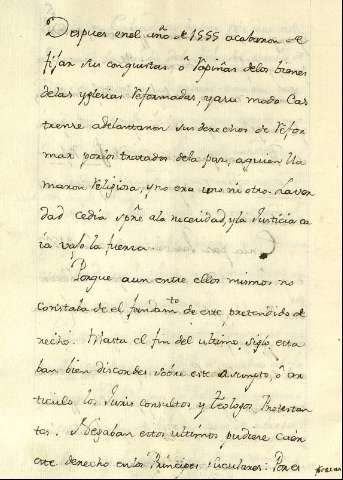 Despues en el año de 1555 acabaron de
fijar sus conquistas ô rapiñas delos bienes
delas yglesias reformadas, y a su modo Cas
trense adelantaron sus derechos de refor
mar por los tratados dela paz, a quien lla
maron religiosa, y no era uno ni otro. La ver
dad cedia spre ala necesidad, y la Justicia ca
ia vajo la fuerza
Porque aun entre ellos mismos no
constaba de el fundamto de este pretendido de
recho. Hasta el fin del ultimo siglo esta
ban bien discordes sobre este asumpto ô ar
ticulo los Juris consultos y teologos Protestan
tes. Negaban estos ultimos pudiese caér
este derecho en los Principes seculares: Por es